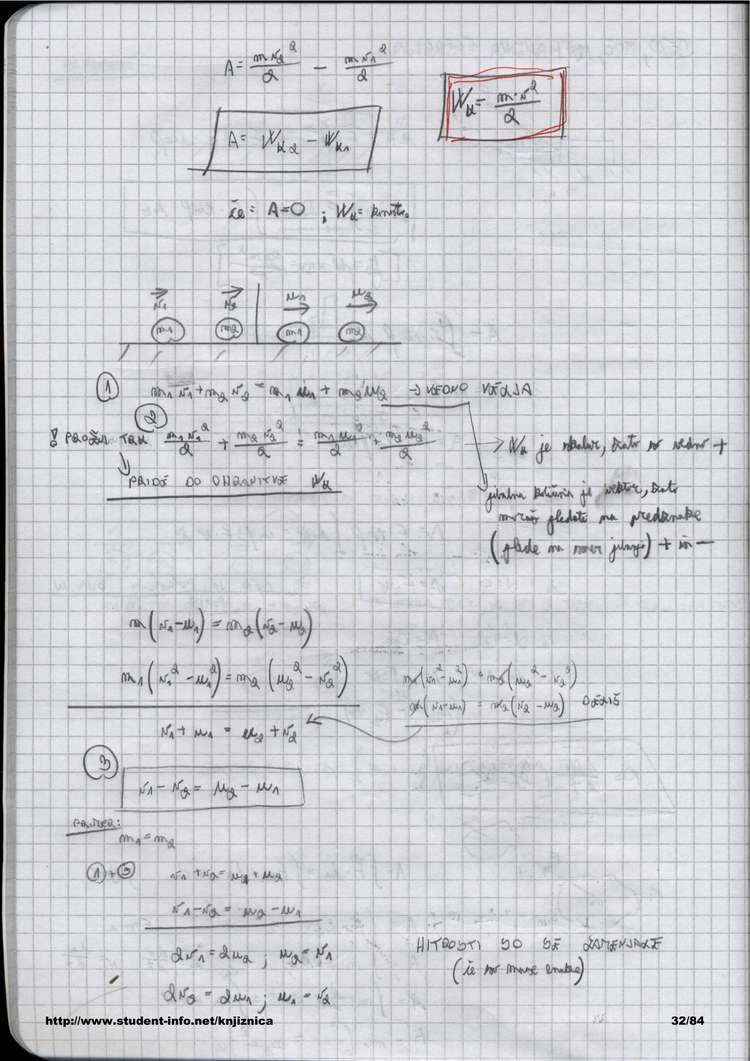 A = mv₂²/2 − mv₁²/2
Wk = m·v²/2
A = Wk2 − Wk1
če: A=0 ; Wk = konst.
v1 v2 u1 u2
m1 m2 m1 m2
① m1v1 + m2v2 = m1u1 + m2u2 → VEDNO VELJA
②
! PROŽNI TRK m1v1²/2 + m2v2²/2 = m1u1²/2 + m2u2²/2 → Wk je skalar, zato so vedno +
↓ PRIDE DO OHRANITVE Wk
gibalna količina je vektor, zato
moraš gledati na predznake
(glede na smer gibanja) + in −
m(v1−u1) = m2(v2−u2)
m1(v1²−u1²) = m2(u2²−v2²)
m1(v1²−u1²) = m2(u2²−v2²)
m1(v1−u1) = m2(v2−u2) DELIŠ
v1 + u1 = u2 + v2
③
v1 − v2 = u2 − u1
PRIMER:
m1 = m2
①+③ v1 + v2 = u2 + u2
v1 − v2 = u2 − u1
2v1 = 2u2 ; u2 = v1
HITROSTI SO SE ZAMENJALE
(če so mase enake)
2v2 = 2u1 ; u1 = v2
http://www.student-info.net/knjiznica
32/84